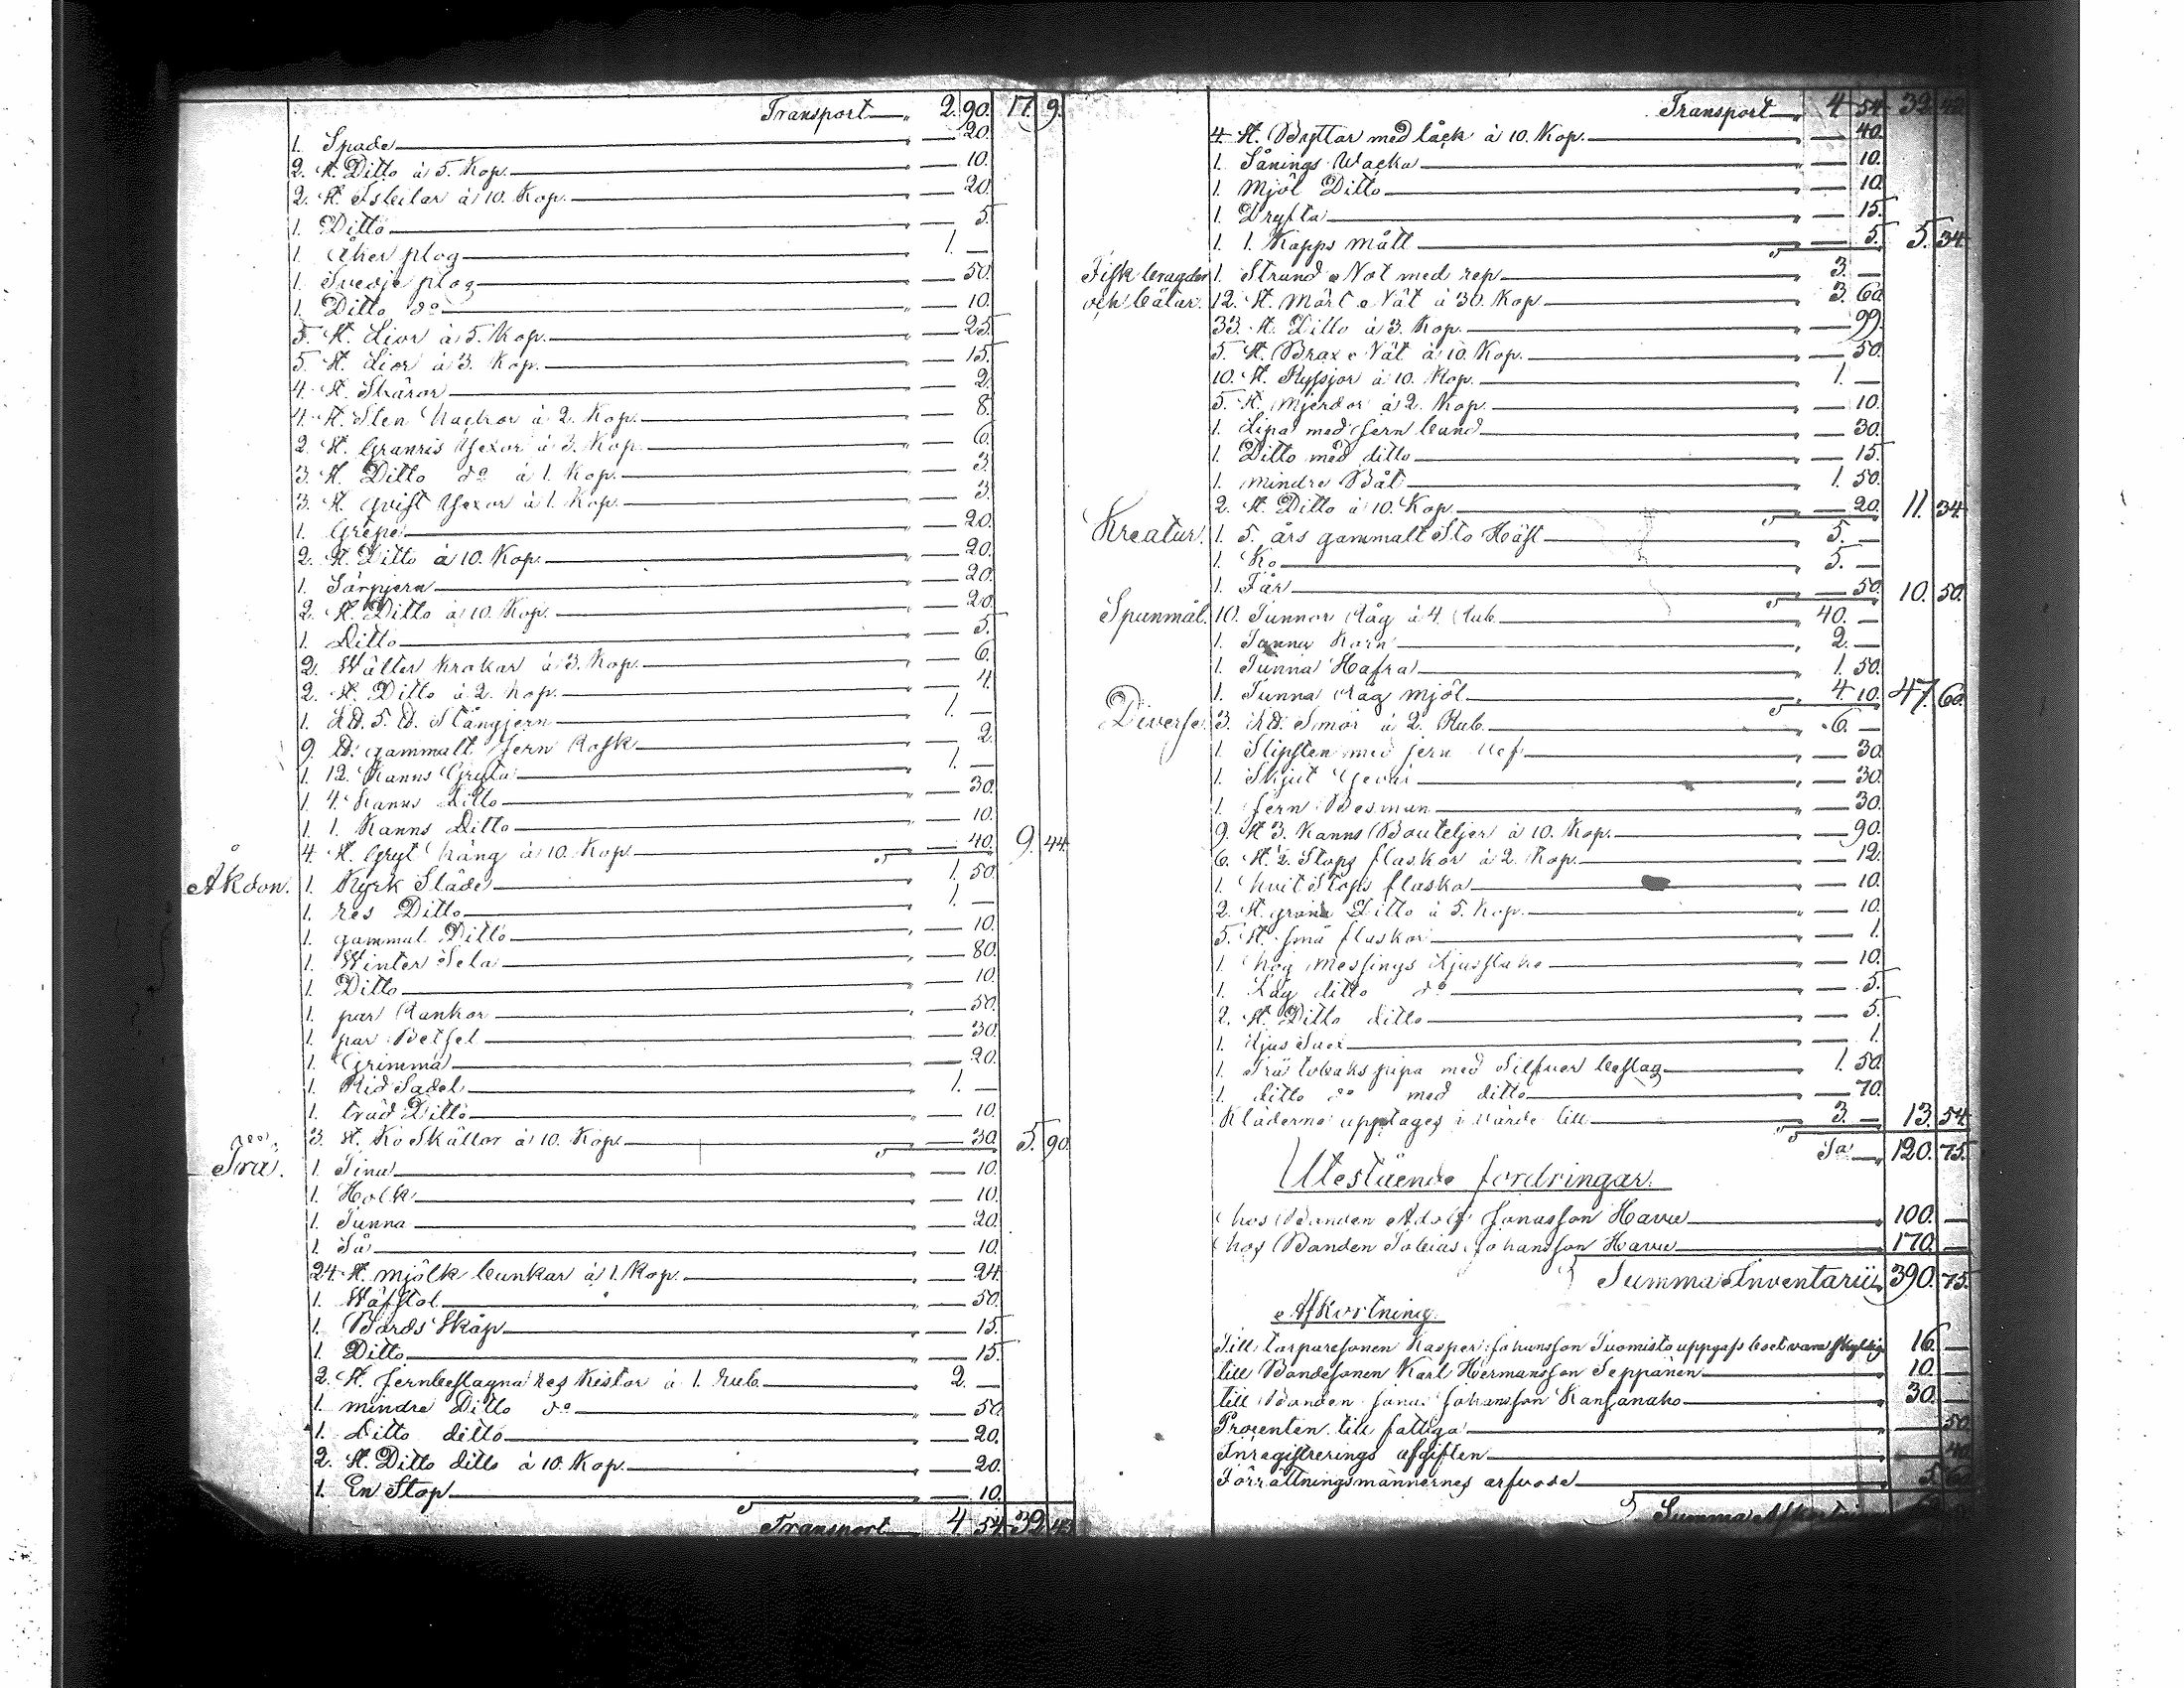 Transport 2. 90. 17. 9.
1. Spade 20.
2. st. Ditto à 5. Kop. 10.
2. st. Isbilar à 10. Kop. 20.
1. Ditto 5.
1. Åker plog 1. —
1. Svedje plog 50.
1. Ditto do 10.
5. st. Lior à 5. Kop. 25.
5. st. Lior à 3. Kop. 15.
4. st. Skäror 2.
4. st. Sten hackor à 2. Kop. 8.
2. st. Granris Yxor à 3. Kop. 6.
3. st. Ditto do à 1. Kop. 3.
3. st. qvist Yxor à 1. Kop. 3.
1. Grepe 20.
2. st. Ditto à 10. Kop. 20.
1. jern 20.
2. st. Ditto à 10. Kop. 20.
1. Ditto 5.
2. Wälter krokar à 3. Kop. 6.
2. st. Ditto à 2. Kop. 4.
1. L℔. 5. ℔. Stångjern 1. —
9. ℔. gammalt jern Rosk 2.
1. 12. Kanns Gryta 1. —
1. 4. Kanns Ditto 30.
1. 1. Kanns Ditto 10.
4. st. Gryt häng à 10. Kop. 40. 9. 44.
Åkdon. 1. Kyrk Släde 1. 50.
1. res Ditto 1. —
1. gammal Ditto 10.
1. Winter Sela 80.
1. Ditto 10.
1. par Rankor 50.
1. par Betsel 30.
1. Grimma 20.
1. Rid Sadel 1. —
1. träd Ditto 10.
3. st. Ko Skällor à 10. Kop. 30. 5. 90.
Trä. 1. Tina 10.
1. Holk 10.
1. Tunna 20.
1. Så 10.
24. st. mjölk bunkar à 1. Kop. 24.
1. Wäfstol 50.
1. Bords Skåp 15.
1. Ditto 15.
2. st. jernbeslagna res Kistor à 1. Rub. 2. —
1. mindre Ditto do 50.
1. Ditto ditto 20.
2. st. Ditto ditto à 10. Kop. 20.
1. En Stop 10.
Transport 4 54. 32. 43.
Transport 4 54. 32.
4. st. Byttor med låck à 10. Kop. 40.
1. Sånings Wacka 10.
1. Mjöl Ditto 10.
1. Dryfta 15.
1. 1. Kapps mått 5. 5. 34.
Fisk bragder 1. Strand Not med rep 3. —
och båtar. 12. st. Mört Nät à 30. Kop 3. 60.
33. st. Ditto à 3. Kop. 99.
5. st. Brax Nät à 10. Kop. 50.
10. st. Ryssjor à 10. Kop. 1. —
5. st. Mjerdor à 2. Kop. 10.
1. med jern band 30.
1. Ditto med ditto 15.
1. mindre Båt 1. 50.
2. st. Ditto à 10. Kop. 20. 11. 34.
Kreatur. 1. 5. års gammalt Sto Häst 5. —
1. Ko 5. —
1. Får 50. 10. 50.
Spanmål. 10. Tunnor Råg à 4. Rub. 40. —
1. Tunna Korn 2. —
1. Tunna Hafra 1. 50.
1. Tunna Råg mjöl 4. 10. 47. 60.
Diverse. 3. L℔. Smör à 2. Rub. 6. —
1. Slipsten med jern Vef 30.
1. Skjut Gevär 30.
1. jern Besman 30.
9. st. 3. Kanns Bouteljer à 10. Kop. 90.
6. st. ½. Stops flaskor à 2. Kop. 12.
1. hvit Stops flaska 10.
2. st. gröna Ditto à 5. Kop. 10.
5. st. små flaskor 1.
1. hög Messings Ljusstake 10.
1. Låg ditto do 5.
2. st. Ditto ditto 5.
1. Ljus Sax 1.
1. Trä tobaks pipa med Silfver beslag 1. 50.
1. ditto do med ditto 70.
Kläderne upptages i värde till 3. — 13. 54.
Sa 120. 75.
Utestående fordringar.
hos Bonden Adolf Jonasson Havu 100. —
hos Bonden Tobias Johansson Havu 170. —
Summa Inventarii 390. 75.
Afkortning.
Till torparesonen Kasper Johansson Tuomisto uppgafs boet vara skyldig 16. —
till Bondesonen Karl Hermansson Seppänen 10. —
till Bonden Johansson Kansanaho 30. —
Procenten till fattiga 50.
Inregistrerings afgiften 40.
Förrättningsmännernes arfvode
Summa